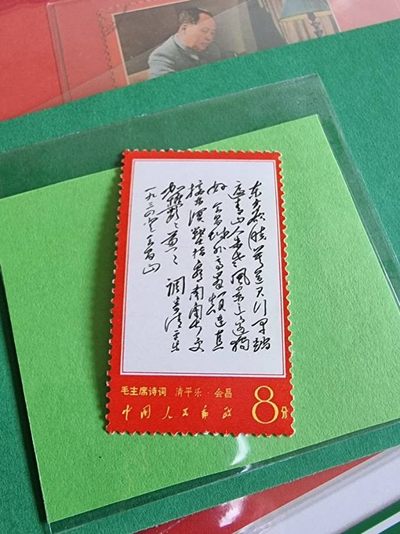 东方欲晓莫道君行早踏
遍青山人未老风景这边独
好 会昌城外高峰颠连直
接东溟战士指看南粤更
加郁々葱々 调寄清平乐
一九三四 会昌山
毛主席诗词 清平乐·会昌
中国人民邮政 8分